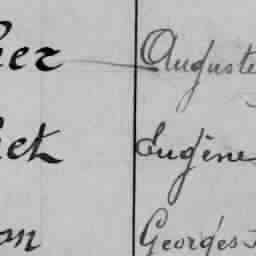 ier Auguste
iet Eugène
on Georges